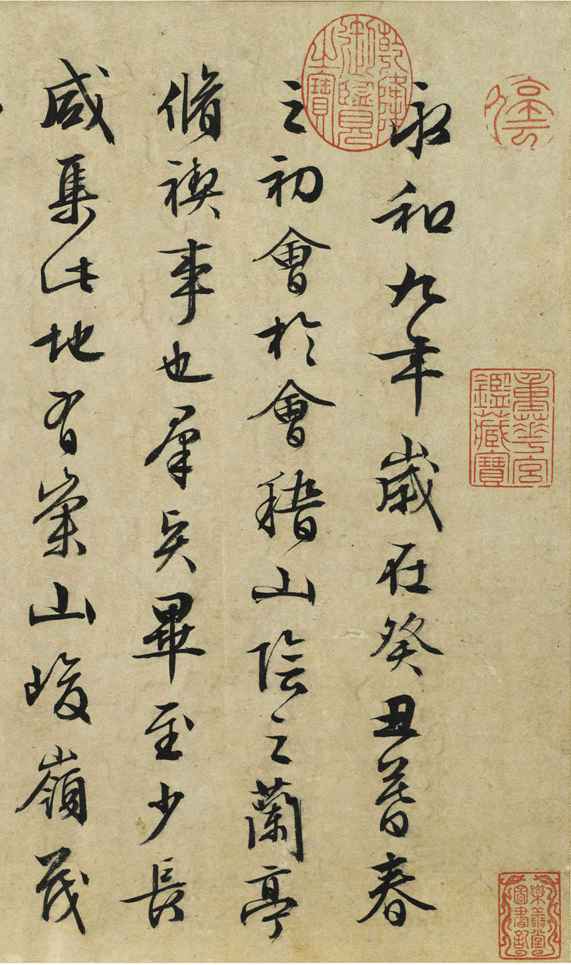 重華宮
鑑藏寶
樂善堂
圖書記
乾隆
御覽
之寶
永和九年歲在癸丑暮春
之初會於會稽山陰之蘭亭
脩禊事也羣賢畢至少長
咸集此地有崇山峻嶺茂